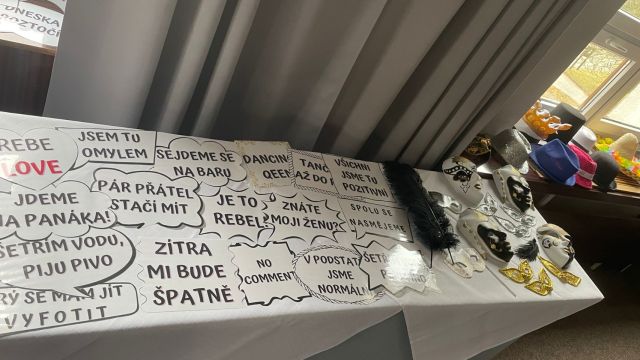 DNESKA
ROZTOČÍ
REBE
LOVE
JSEM TU
OMYLEM
SEJDEME SE
NA BARU
DANCING
QEEN
TANČ
AŽ DO
VŠICHNI
JSME TU
POZITIVNÍ
JDEME
NA PANÁKA!
PÁR PŘÁTEL
STAČÍ MÍT
JE TO
REBEL
ZNÁTE
MOJI ŽENU?
SPOLU SE
NASMĚJEME
ŠETŘÍM VODU,
PIJU PIVO
ZÍTRA
MI BUDE
ŠPATNĚ
NO
COMMENT
V PODSTAT
JSME
NORMÁL
ŠETŘ
RÝ SE MÁM JÍT
VYFOTIT